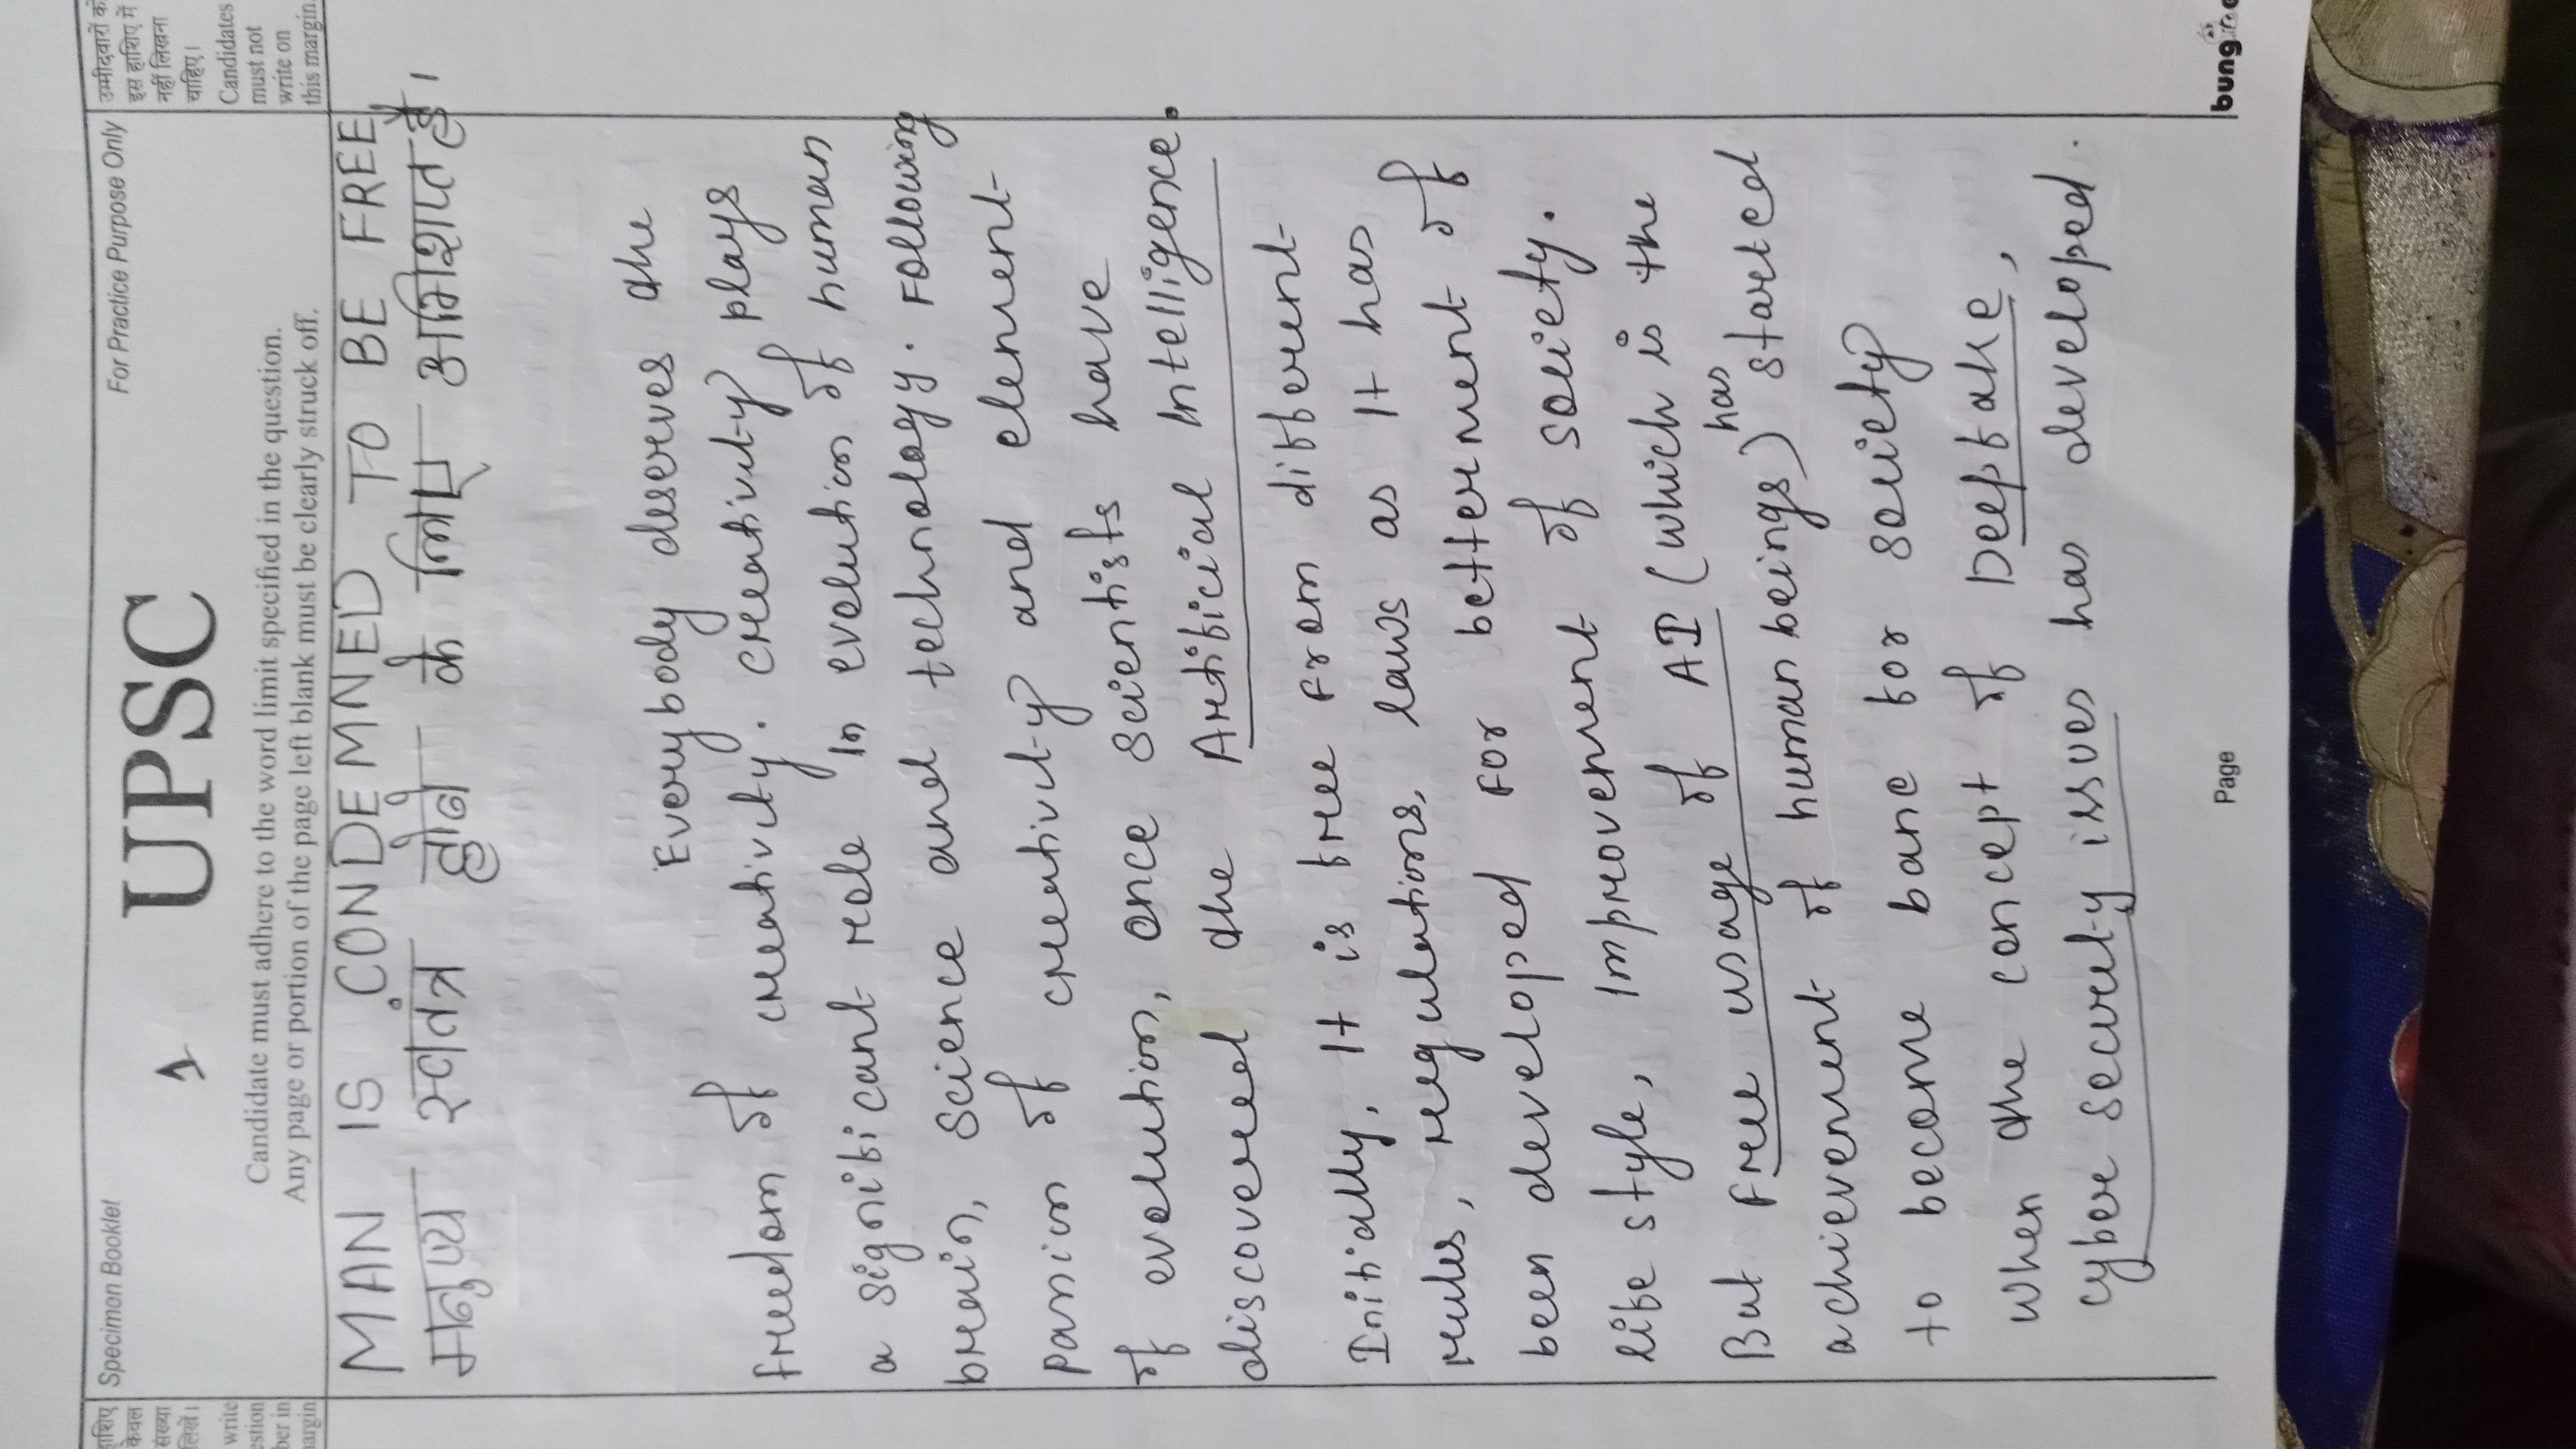 उम्मीदवारों को
इस हाशिए में
नहीं लिखना
चाहिए।
Candidates
must not
write on
this margin.
हाशिए
केवल
संख्या
लिखें।
write
Specimen Booklet
For Practice Purpose Only
1
UPSC
Candidate must adhere to the word limit specified in the question.
Any page or portion of the page left blank must be clearly struck off.
MAN IS CONDEMNED TO BE FREE
मनुष्य स्वतंत्र होने के लिए अभिशप्त है।
Everybody deserves the
freedom of creativity. creativity plays
a significant role in evolution of human
brain, science and technology. Following
passion of creativity and element
of evolution, once scientists have
discovered the Artificial Intelligence.
Initially, It is free from different
rules, regulations, laws as it has
been developed for betterment of
life style, improvement of society.
But free usage of AI (which is the
achievement of human beings) has started
to become bane for society
when the concept of Deepfake,
cyber security issues has developed.
Page